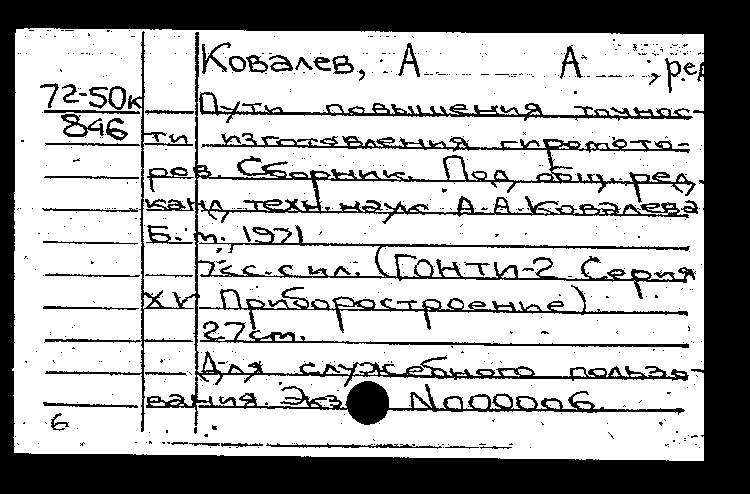 Ковалев, А А , ред
72-50к
846
Пути повышения точнос-
ти изготовления гиромото-
ров. Сборник. Под общ. ред.
канд. техн. наук А.А. Ковалева
Б. м., 1971
с. с ил. (ГОНТИ-2 Серия
XV Приборостроение)
27 см.
Для служебного пользо-
вания. Экз N000006.
6